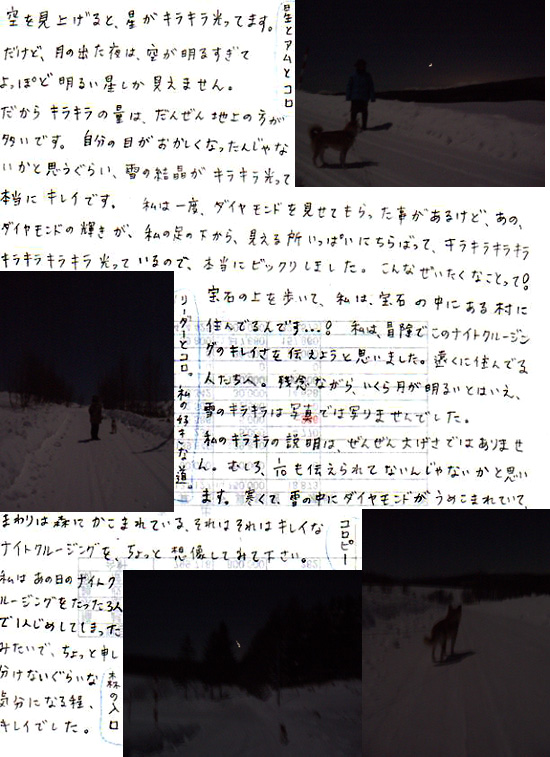 空を見上げると、星がキラキラ光ってます。
だけど、月の出た夜は、空が明るすぎて
よっぽど明るい星しか見えません。
だからキラキラの量は、だんぜん地上の方が
多いです。自分の目がおかしくなったんじゃな
いかと思うぐらい、雪の結晶がキラキラ光って
本当にキレイです。私は一度、ダイヤモンドを見せてもらった事があるけど、あの、
ダイヤモンドの輝きが、私の足の下から、見える所いっぱいにちらばって、キラキラキラキラ
キラキラキラキラ光っているので、本当にビックリしました。こんなぜいたくなことって!
宝石の上を歩いて、私は、宝石の中にある村に
住んでるんです…!私は、冒険でこのナイトクルージン
グのキレイさを伝えようと思いました。遠くに住んでる
人たちへ。残念ながら、いくら月が明るいとはいえ、
雪のキラキラは写真では写りませんでした。
私のキラキラの説明は、ぜんぜん大げさではありませ
ん。むしろ、1/10も伝えられてないんじゃないかと思い
ます。寒くて、雪の中にダイヤモンドがうめこまれていて、
まわりは森にかこまれている、それはそれはキレイな
ナイトクルージングを、ちょっと想像してみて下さい。
私はあの日のナイトク
ルージングをたった3人
で1人じめしてしまった
みたいで、ちょっと申し
分けないぐらいな
気分になる程、
キレイでした。
星とアムとコロ
リーダーとコロ。私の好きな道。
コロピー
森の入口